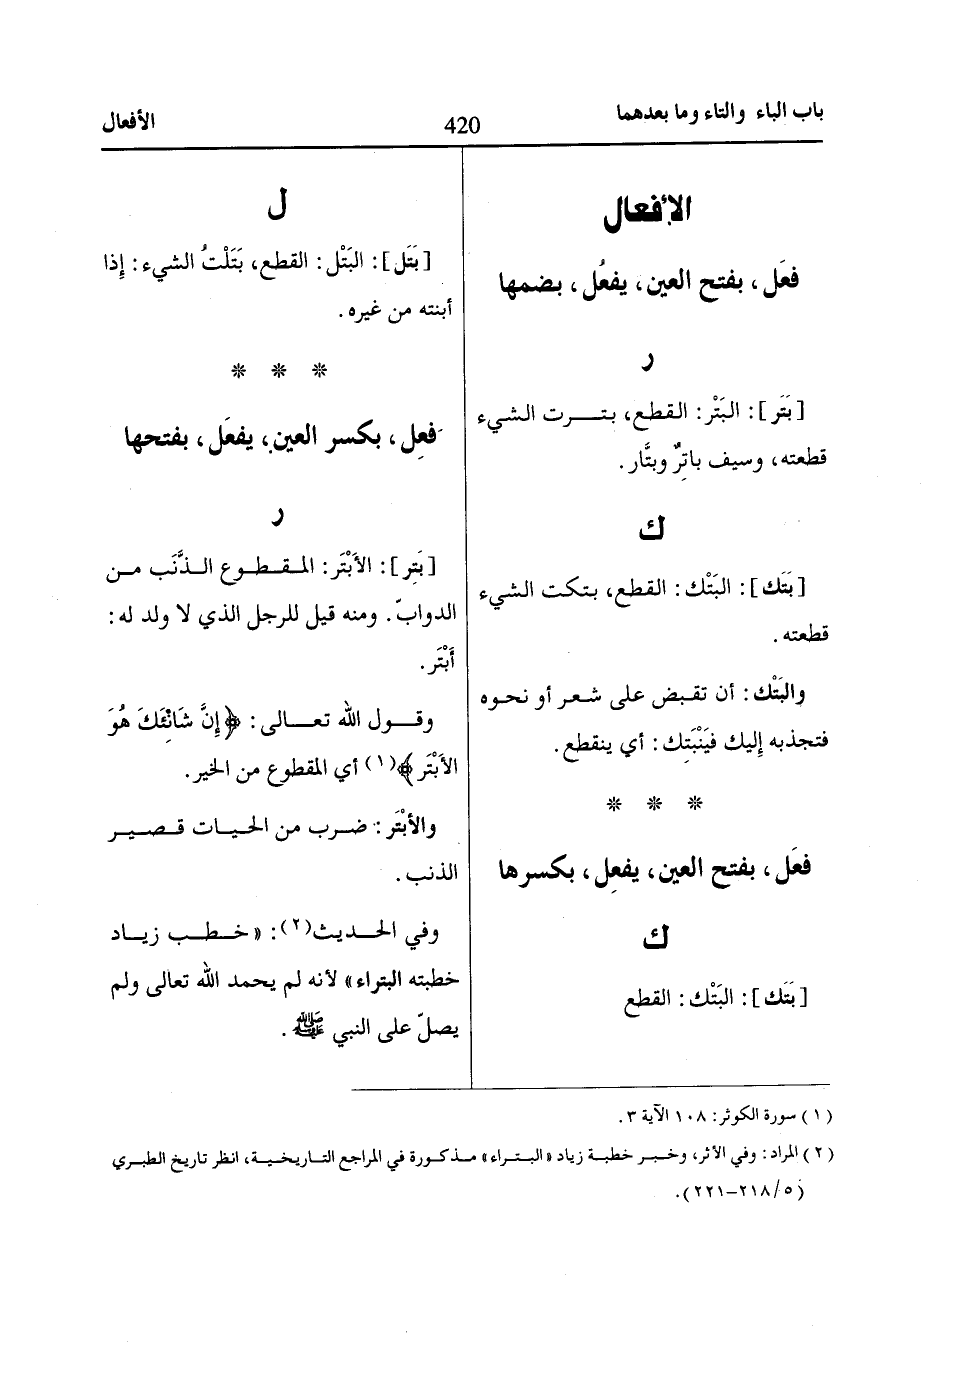 باب الباء والتاء وما بعدهما
420
الأفعال
الأفعال
فعَل، بفتح العين، يفعُل، بضمها
ر
[بَتَر]: البَتْر: القطع، بتــرت الشيء
قطعته، وسيف باتِرٌ وبتَّار.
ك
[بَتَك]: البَتْك: القطع، بتكت الشيء
قطعته.
والبَتْك: أن تقبض على شعر أو نحوه
فتجذبه إليك فيَنْبَتِك: أي ينقطع.
* * *
فعَل، بفتح العين، يفعِل، بكسرها
ك
[بَتَك]: البَتْك: القطع
ل
[بَتَل]: البَتْل: القطع، بَتَلْتُ الشيء: إذا
أبنته من غيره.
* * *
فعِل، بكسر العين، يفعَل، بفتحها
ر
[بَتِر]: الأَبْتَر: المقطوع الذَّنَب من
الدوابّ. ومنه قيل للرجل الذي لا ولد له:
أَبْتَر.
وقول الله تعالى: ﴿إِنَّ شَانِئَكَ هُوَ
الأَبْتَر﴾(١) أي المقطوع من الخير.
والأَبْتَر: ضرب من الحيات قصير
الذنب.
وفي الحديث(٢): «خطب زياد
خطبته البتراء» لأنه لم يحمد الله تعالى ولم
يصلّ على النبي ﷺ.
(١) سورة الكوثر: ١٠٨ الآية ٣.
(٢) المراد: وفي الأثر، وخبر خطبة زياد «البتراء» مذكورة في المراجع التاريخية، انظر تاريخ الطبري
(٥/٢١٨–٢٢١).